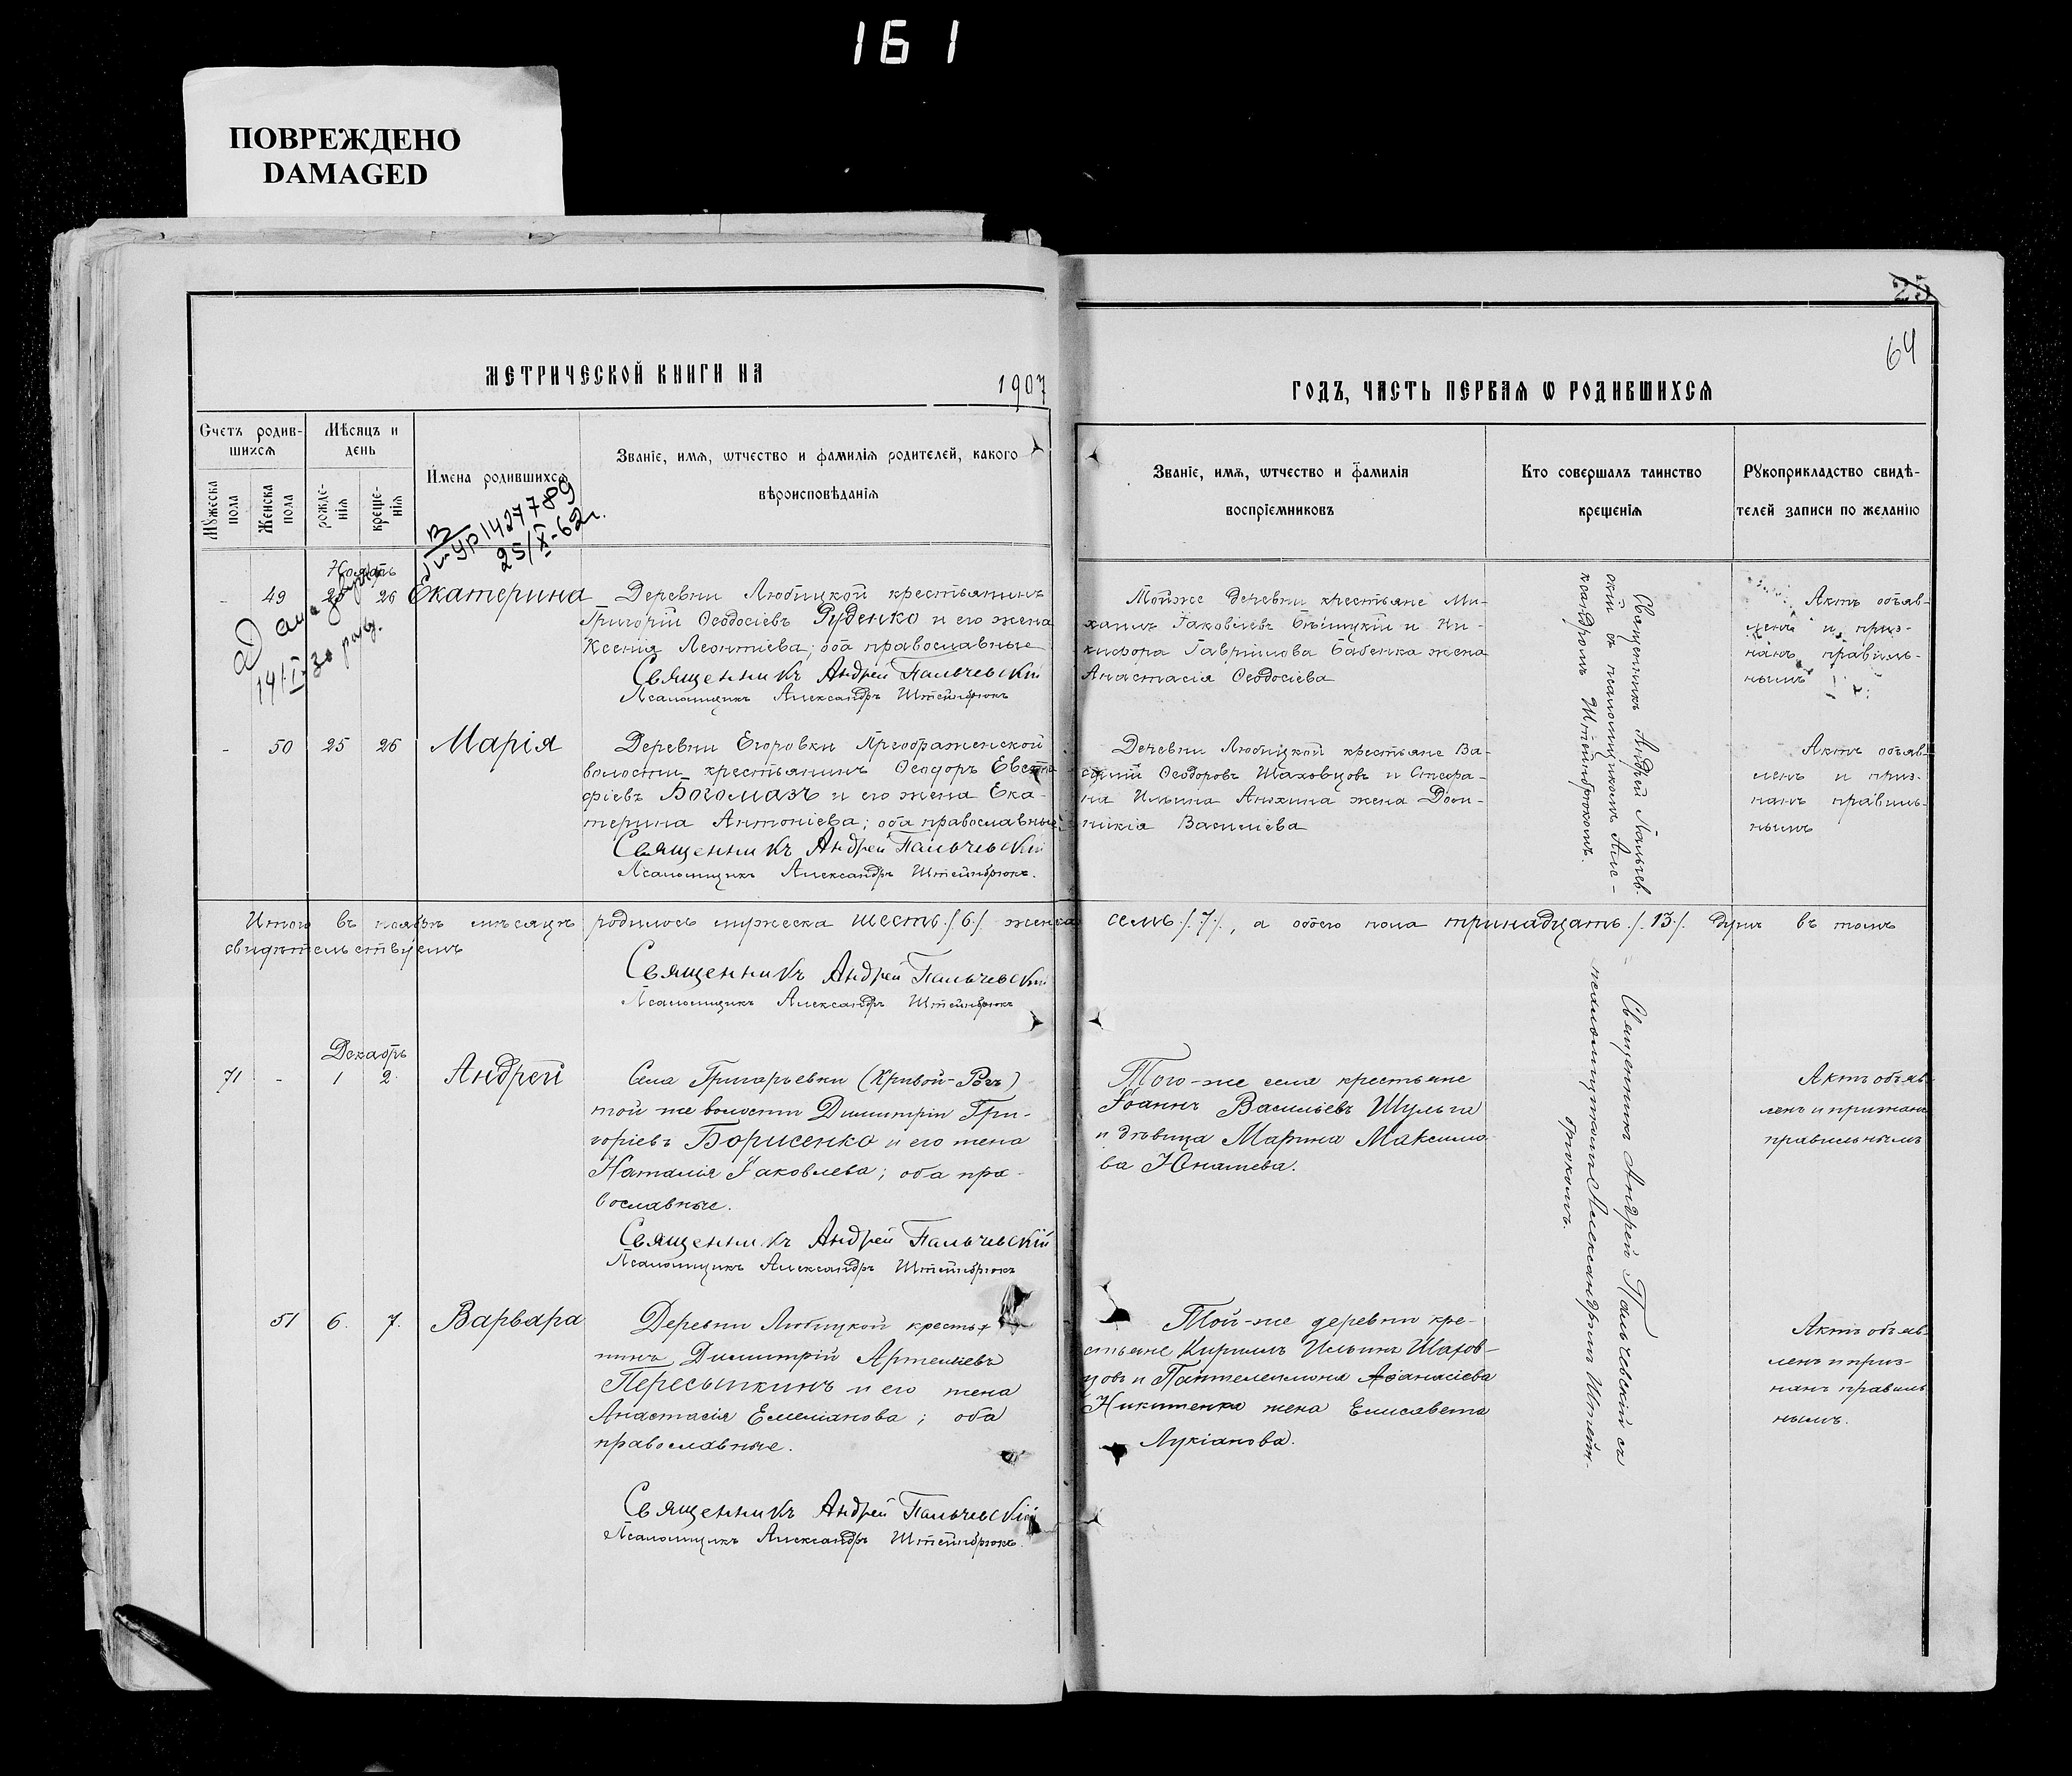 161
ПОВРЕЖДЕНО
DAMAGED
25
64
МЕТРИЧЕСКОЙ КНИГИ НА 1907
ГОДЪ, ЧАСТЬ ПЕРВАЯ Ѡ РОДИВШИХСЯ
Счетъ родив-
шихся
Мужеска пола
Женска пола
Мѣсяцъ и
день
рожде-
нія
креще-
нія
Имена родившихся
Званіе, имя, ѡтчество и фамилія родителей, какого
вѣроисповѣданія
Званіе, имя, ѡтчество и фамилія
воспріемниковъ
Кто совершалъ таинство
крещенія
Рукоприкладство свидѣ-
телей записи по желанію
1427789
25/X-62г.
Ноябрь
- 49 26 Екатерина
Деревни Любицкой крестьянинъ
Григорій Ѳеодосіевъ Руденко и его жена
Ксенія Леонтіева; оба православные
Священникъ Андрей Пальчевскій
Псаломщикъ Александръ Штейнбрюкъ
Тойже деревни крестьяне Ми-
хаилъ Іаковлевъ и Ни-
кифора Гаврилова Бабенка жена
Анастасія Ѳеодосіева
Священникъ Андрей Пальчев-
скій съ псаломщикомъ Алек-
сандромъ Штейнбрюкомъ.
Актъ объяв-
ленъ и приз-
нанъ правиль-
нымъ
- 50 25 26 Марія
Деревни Егоровки Преображенской
волости крестьянинъ Ѳеодоръ Евста-
фіевъ Богомазъ и его жена Ека-
терина Антоніева; оба православные
Священникъ Андрей Пальчевскій
Псаломщикъ Александръ Штейнбрюкъ.
Деревни Любицкой крестьяне Ва-
силій Ѳеодоровъ Шаховцовъ и Стефа-
на Ильина Анохина жена Дом-
никія Василіева
Актъ объяв-
ленъ и приз-
нанъ правиль-
нымъ
Итого въ ноябрѣ мѣсяцѣ родилось мужеска шесть /6/ женска семь /7/, а обоего пола тринадцать /13/ душъ въ томъ
свидѣтельствуемъ
Священникъ Андрей Пальчевскій
Псаломщикъ Александръ Штейнбрюкъ
Декабрь
71 - 1 2 Андрей
Села Григорьевки (Кривой-Рогъ)
той же волости Димитрій Гри-
горіевъ Борисенко и его жена
Наталія Іаковлева; оба пра-
вославные.
Священникъ Андрей Пальчевскій
Псаломщикъ Александръ Штейнбрюкъ
Того-же села крестьяне
Іоаннъ Васильевъ Шульга
и дѣвица Марина Максимо-
ва Юнашева.
Священникъ Андрей Пальчевскій съ
псаломщикомъ Александромъ Штейн-
брюкомъ.
Актъ объяв-
ленъ и признанъ
правильнымъ
51 6. 7. Варвара
Деревни Любицкой крестья-
нинъ Димитрій Артеміевъ
Пересыпкинъ и его жена
Анастасія Емеліанова; оба
православные.
Священникъ Андрей Пальчевскій
Псаломщикъ Александръ Штейнбрюкъ.
Той-же деревни кре-
стьяне Кириллъ Ильинъ Шахов-
цовъ и Пантелеимона Аѳанасіева
Никитенка жена Елисавета
Лукіанова.
Актъ объяв-
ленъ и приз-
нанъ правиль-
нымъ.